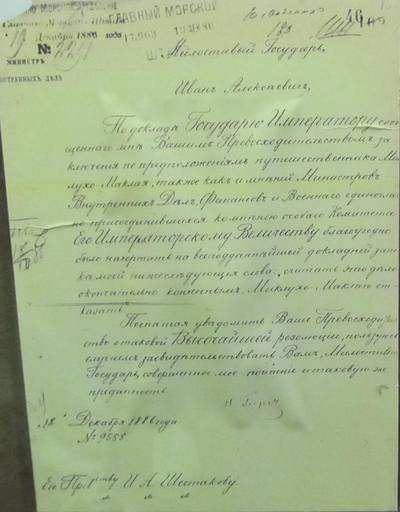 ГЛАВНЫЙ МОРСКОЙ
19 Декабря 1886 года
№
МИНИСТР
ИНОСТРАННЫХ ДѢЛЪ
Милостивый Государь,
Иванъ Алексѣевичъ,
По докладѣ Государю Императору сооб-
щеннаго мнѣ Вашимъ Превосходительствомъ за-
ключенія по предположеніямъ путешественника Мик-
лухо-Маклая, также какъ и мнѣній Министровъ
Внутреннихъ Дѣлъ, Финансовъ и Военнаго единоглас-
но присоединившихся къ мнѣнію особаго Комитета
Его Императорскому Величеству благоугодно
было начертать на всеподданнѣйшей докладной запис-
кѣ моей нижеслѣдующія слова: считать это дѣло
окончательно конченнымъ, Миклухо-Маклаю от-
казать.
Поспѣшая увѣдомить Ваше Превосходитель-
ство о таковой Высочайшей резолюціи, пользуюсь
случаемъ засвидѣтельствовать Вамъ, Милостивый
Государь, совершенное мое почтеніе и таковую же
преданность.
18 Декабря 1886 года
№ 9558
Его Прев-ству И. А. Шестакову